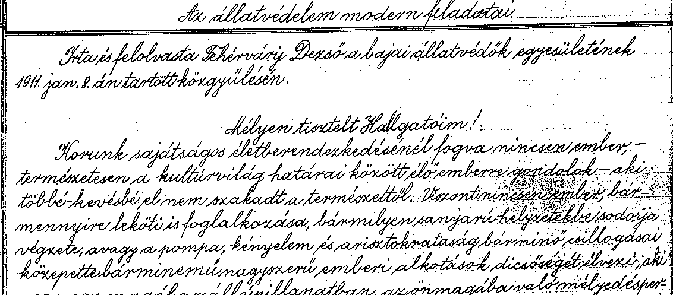 Az állatvédelem modern feladatai.
Irta és felolvasta Fehérváry Dezső a bajai állatvédők egyesületének
1911. jan. 8. án tartott közgyűlésén.
Mélyen tisztelt Hallgatóim!
Korunk sajátságos életberendezkedésénél fogva nincsen ember, –
természetesen a kultúrvilág határai között élő emberre gondolok – aki
többé-kevésbé el nem szakadt a természettől. Viszont nincsen ember, bár-
mennyire leköti is foglalkozása, bármilyen sanyarú helyzetekbe sodorja
végzete, avagy a pompa, kényelem, és arisztokrataság bárminő csillogásai
közepette bárminemű nagyszerű emberi alkotások dicsőségét élvezi, aki
pillanatban, az önmagába való mélyedés per-